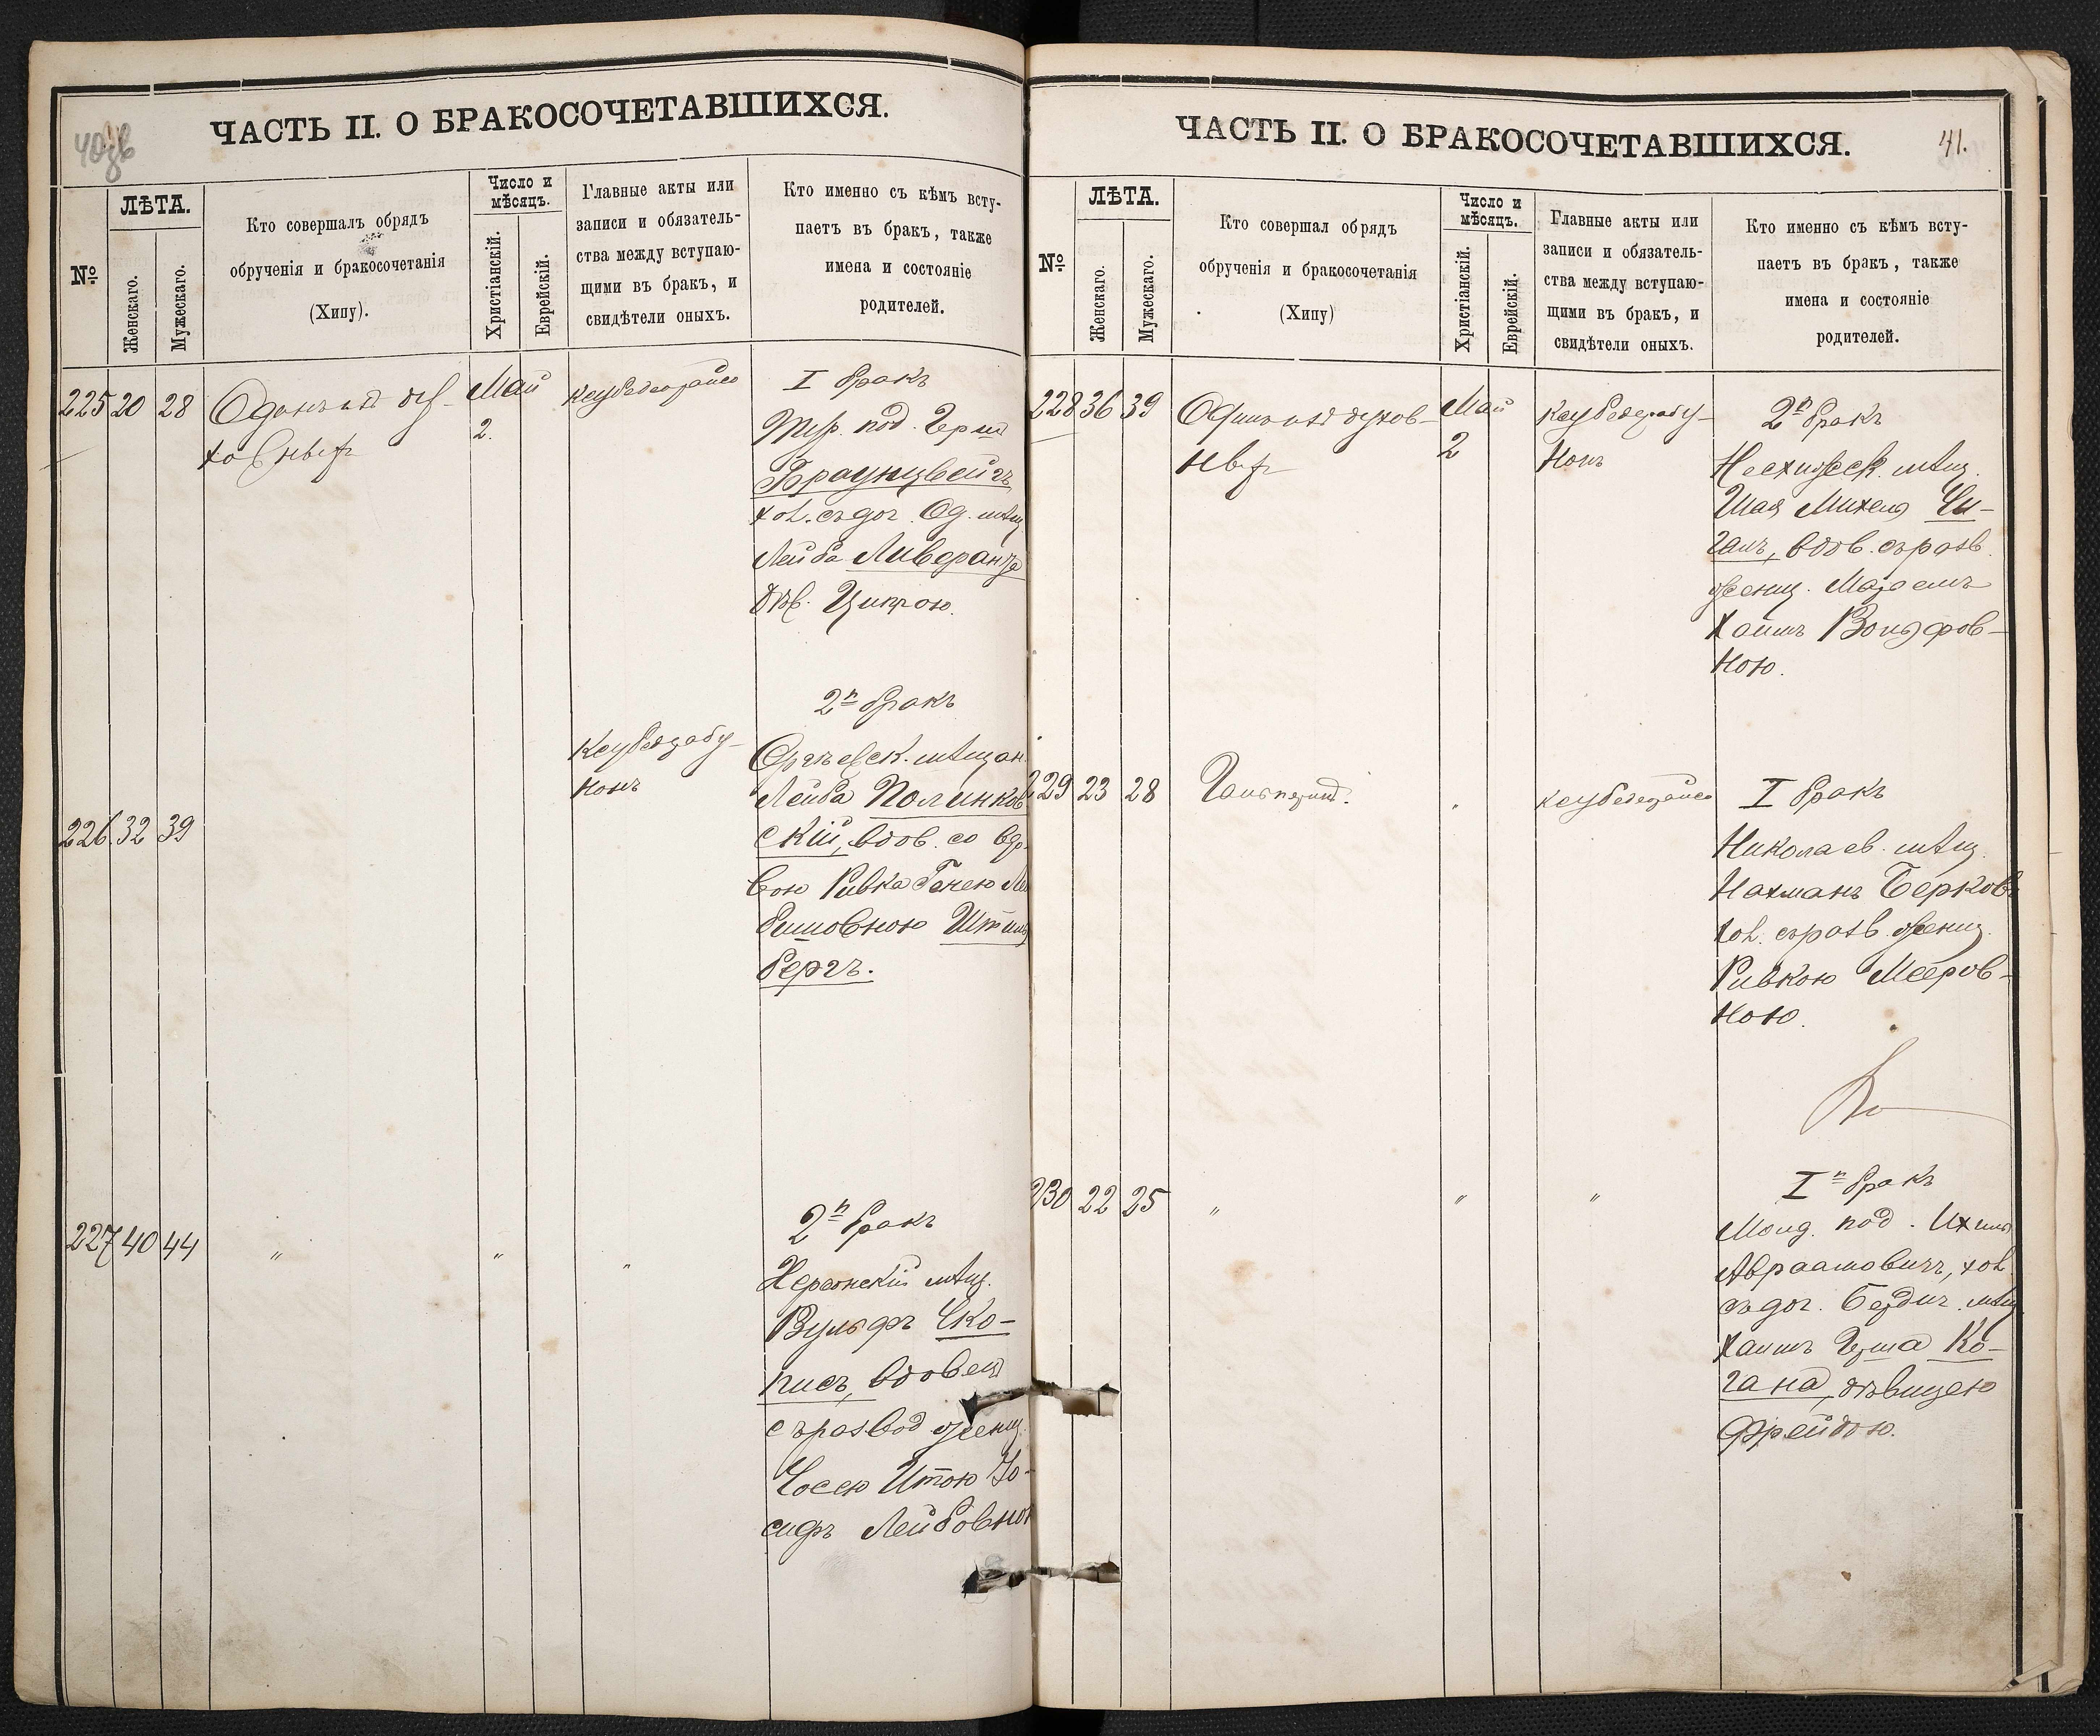 40об
ЧАСТЬ II. О БРАКОСОЧЕТАВШИХСЯ.
№
ЛѢТА.
Женскаго.
Мужескаго.
Кто совершалъ обрядъ
обрученія и бракосочетанія
(Хипу).
Число и
мѣсяцъ.
Христіанскій.
Еврейскій.
Главные акты или
записи и обязатель-
ства между вступаю-
щими въ бракъ, и
свидѣтели оныхъ.
Кто именно съ кѣмъ всту-
паетъ въ бракъ, также
имена и состояніе
родителей.
225 20 28
Май
2.
I бракъ
под. Герш
Браунцвейгъ
хол. съ доч. Од. мѣщ
Лейба Ливеранта
дѣв. Ципрою.
226 32 39
Кеубедзабу-
нонъ
2й бракъ
мѣщан.
Лейба Полинков
скій, вдов. со вдо
вою Ривка Генею
Штейн
бергъ.
227 40 44
" " "
2й бракъ
Херсонскій мѣщ.
Вульфъ Ско-
писъ, вдовец
съ развод женщ.
Хосею Итою Іо-
сифъ Лейбовною
41.
ЧАСТЬ II. О БРАКОСОЧЕТАВШИХСЯ.
№
ЛѢТА.
Женскаго.
Мужескаго.
Кто совершал обрядъ
обрученія и бракосочетанія
(Хипу)
Число и
мѣсяцъ.
Христіанскій.
Еврейскій.
Главные акты или
записи и обязатель-
ства между вступаю-
щими въ бракъ, и
свидѣтели оныхъ.
Кто именно съ кѣмъ всту-
паетъ въ бракъ, также
имена и состояніе
родителей.
228 36 39
Одинъ изъ духов-
ныхъ
Май
2
Кеубедзабу-
нонъ
2й бракъ
мѣщ.
Шая Михель Ци-
ганъ, вдов. съ разв.
женщ.
Хаимъ Вольфов-
ною.
229 23 28
I бракъ
Николаев. мѣщ.
Нахманъ Берков
хол. съ разв. женщ.
Ривкою Мееров-
ною.
230 22 25
" " "
Iй бракъ
Молд. под. Ихил
Авраамовичъ, хол.
съ доч. Бердич. мѣщ
Хаимъ Герша Ко-
гана, дѣвицею
Фрейдою.